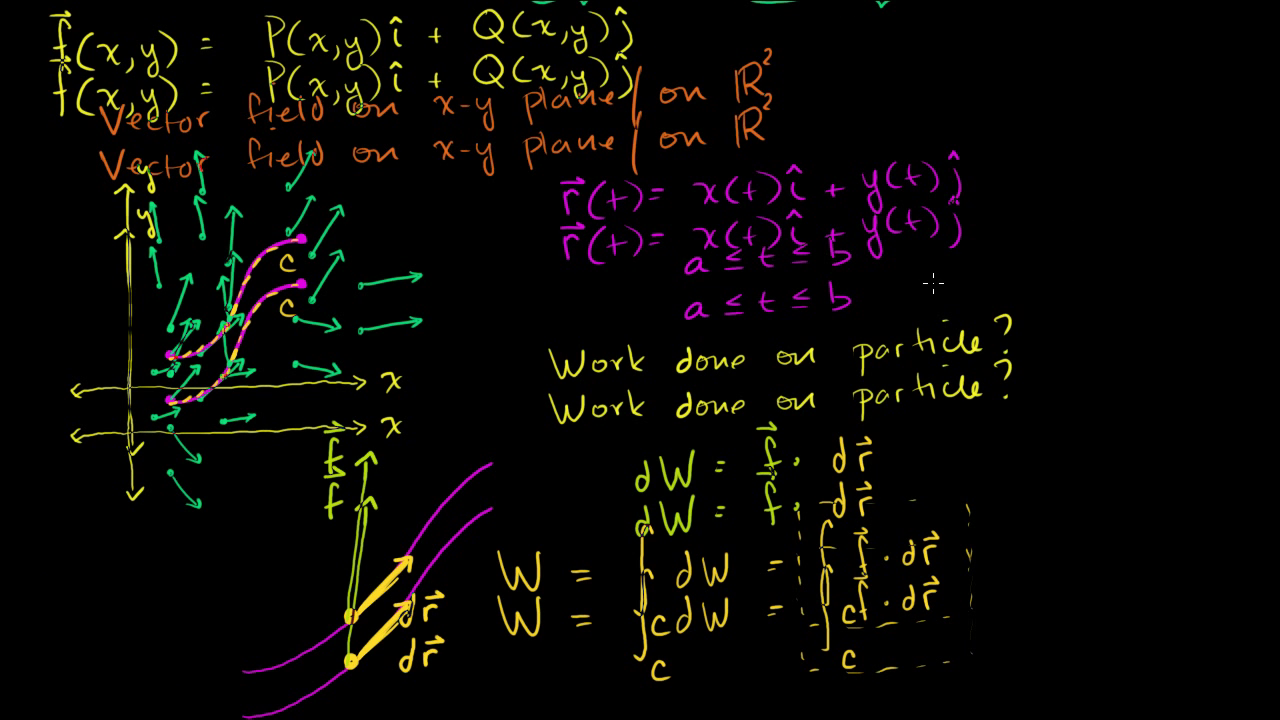 f⃗(x,y) = P(x,y)î + Q(x,y)ĵ
f⃗(x,y) = P(x,y)î + Q(x,y)ĵ
Vector field on x-y plane / on ℝ²
Vector field on x-y plane / on ℝ²
y
y
r⃗(t) = x(t)î + y(t)ĵ
r⃗(t) = x(t)î + y(t)ĵ
a ≤ t ≤ b
a ≤ t ≤ b
C
C
x
x
Work done on particle?
Work done on particle?
f⃗
f⃗
dr⃗
dr⃗
dW = f⃗ · dr⃗
dW = f⃗ · dr⃗
W = ∫_C dW = ∫_C f⃗ · dr⃗
W = ∫_C dW = ∫_C f⃗ · dr⃗